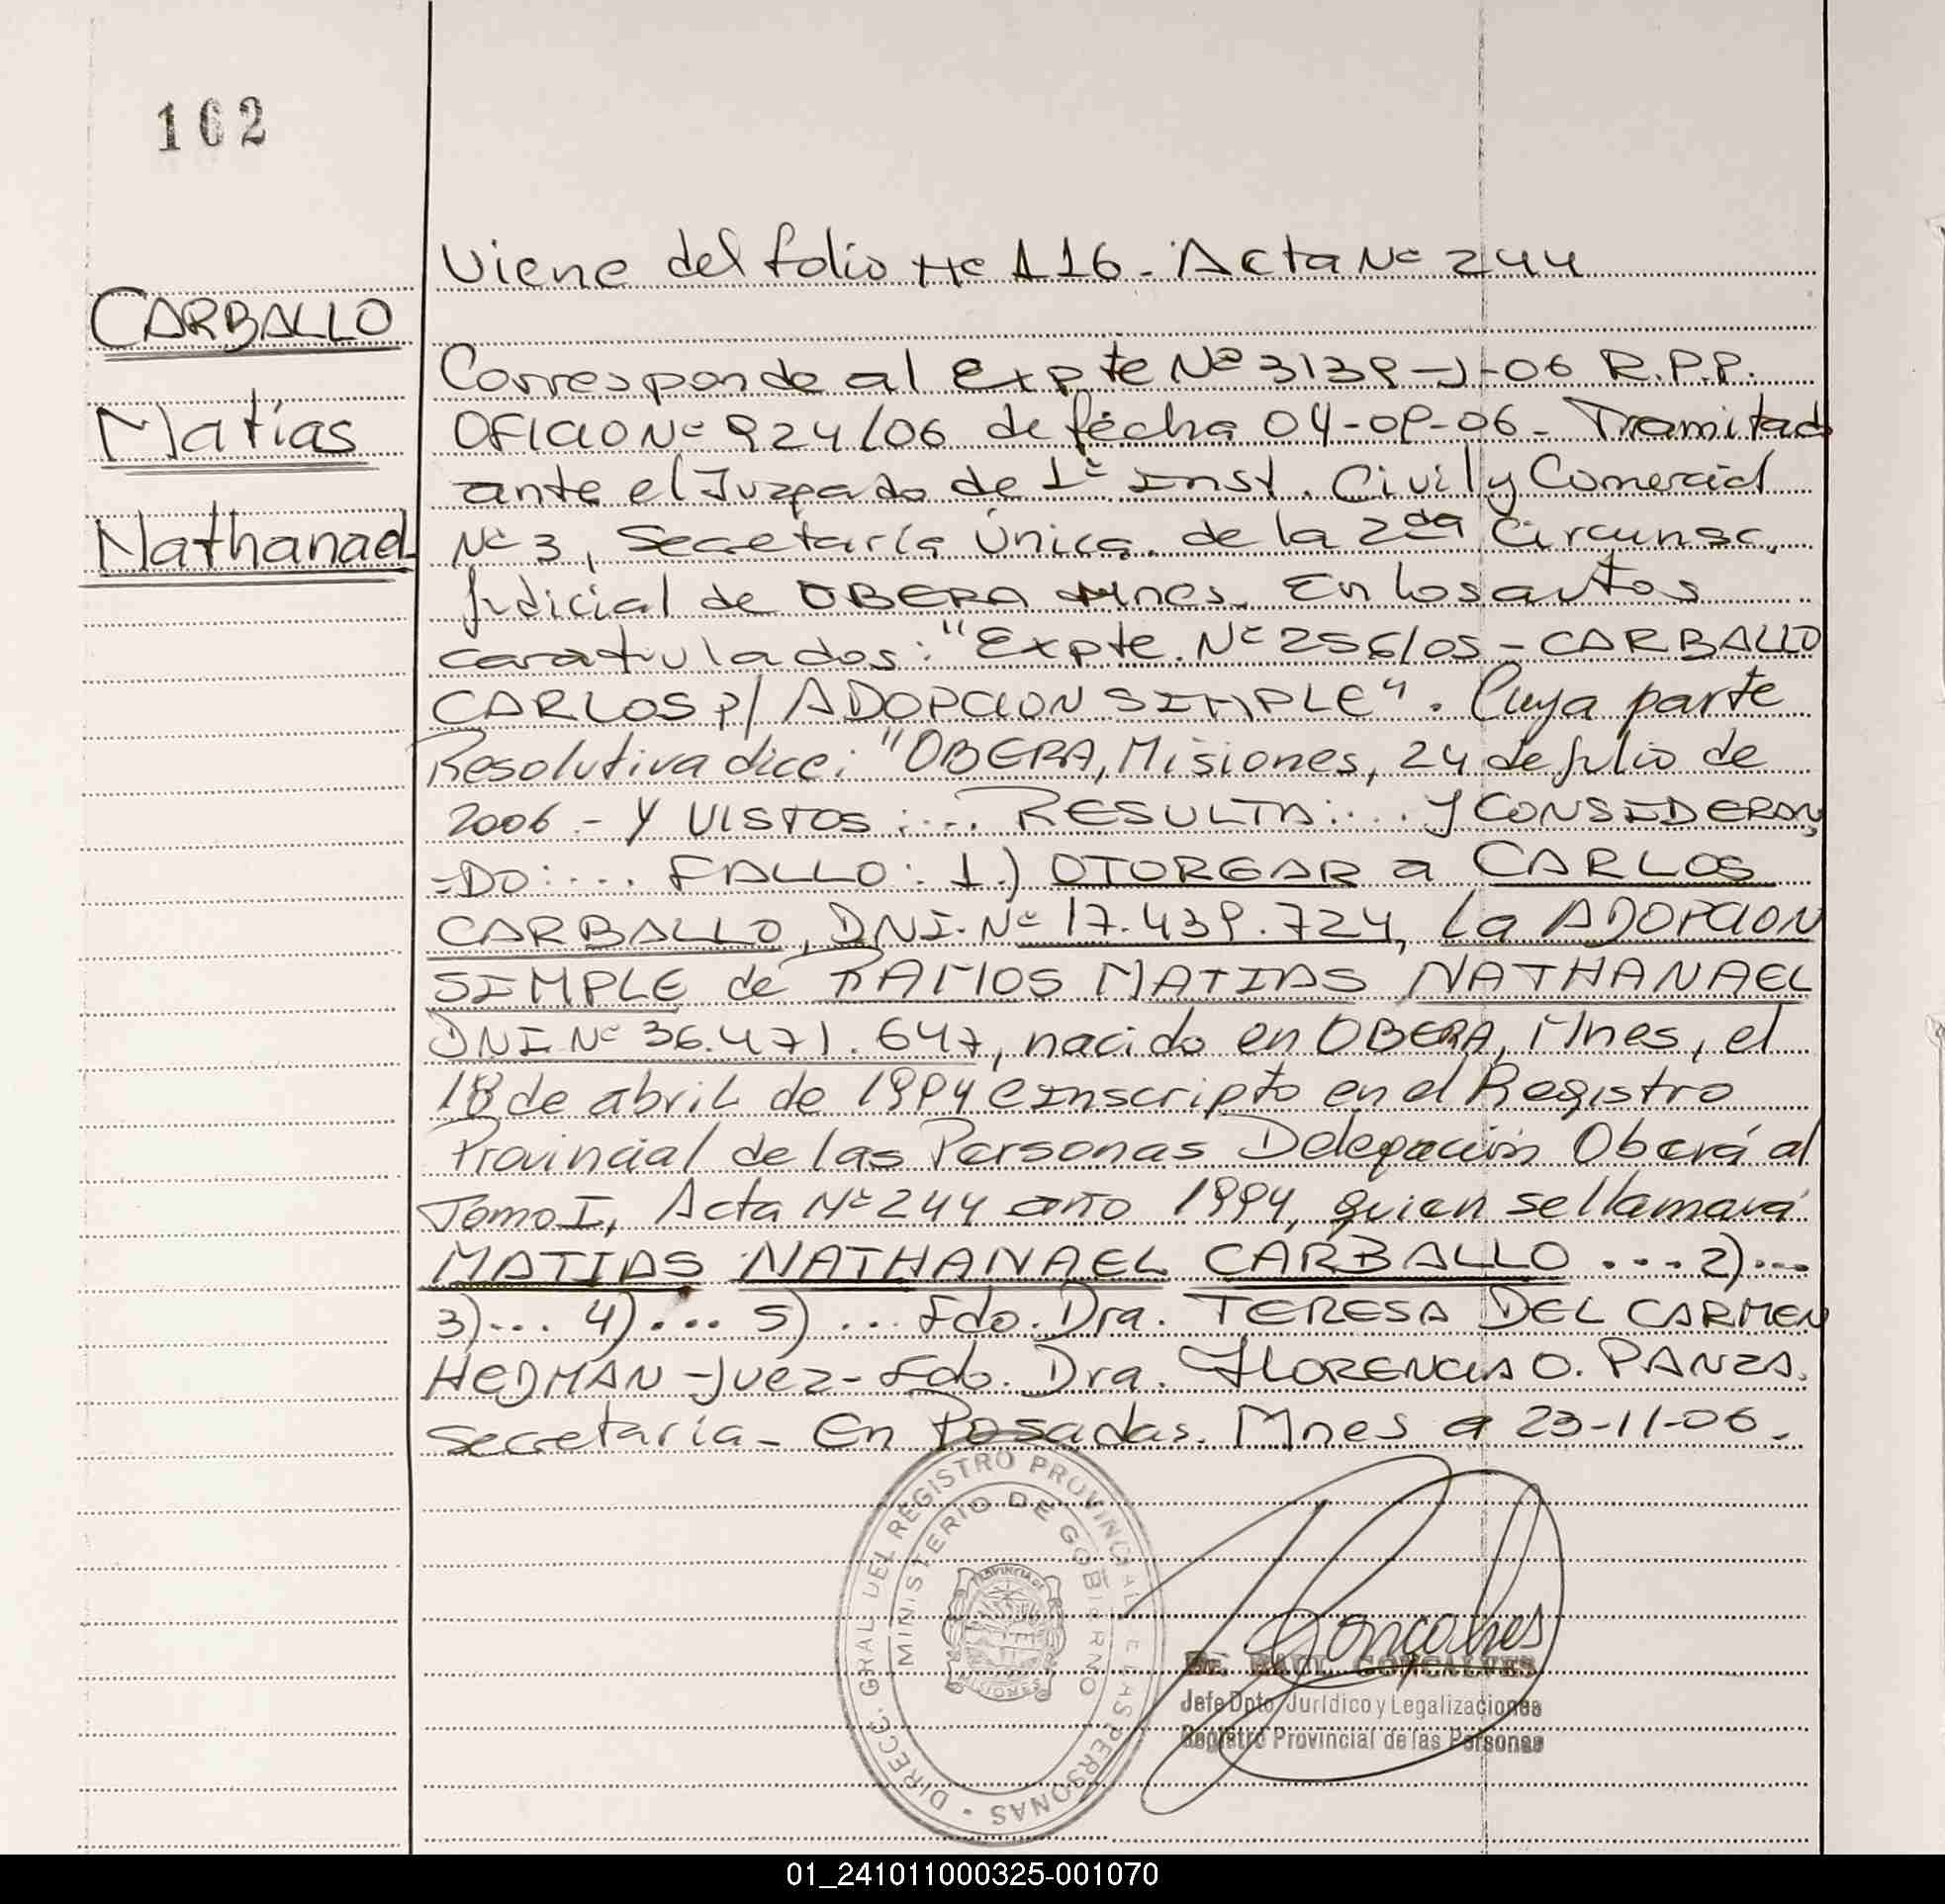 162
Viene del folio Nº 116. Acta Nº 244
CARBALLO
Matías
Nathanael
Corresponde al Expte Nº 3139-J-06 R.P.P.
OFICIO Nº 924/06 de fecha 04-09-06- Tramitado
ante el Juzgado de 1ª Inst. Civil y Comercial
Nº 3, Secretaría Única. de la 2da Circunsc.
Judicial de OBERA Mnes. En los autos
caratulados: "Expte. Nº 256/05 - CARBALLO
CARLOS P/ ADOPCION SIMPLE". Cuya parte
Resolutiva dice: "OBERA, Misiones, 24 de julio de
2006.- Y VISTOS:... RESULTA:.... Y CONSIDERAN
-DO:.... FALLO: 1.) OTORGAR a CARLOS
CARBALLO, DNI. Nº 17.439.724, la ADOPCION
SIMPLE de RAMOS MATIAS NATHANAEL
DNI Nº 36.471.647, nacido en OBERA, Mnes, el
18 de abril de 1994 e inscripto en el Registro
Provincial de las Personas Delegación Oberá al
Tomo I, Acta Nº 244 año 1994, quien se llamará
MATIAS NATHANAEL CARBALLO ...2)...
3)... 4)... 5)... Fdo. Dra. TERESA DEL CARMEN
HEDMAN -Juez- Fdo. Dra. FLORENCIA O. PANZA.
Secretaría- En Posadas. Mnes a 23-11-06.
DIRECC. GRAL DEL REGISTRO PROVINCIAL DE LAS PERSONAS
MINISTERIO DE GOBIERNO
PROVINCIA DE
MISIONES
Gonçalves
Dr. RAUL GONÇALVES
Jefe Dpto. Jurídico y Legalizaciones
Registro Provincial de las Personas
01_241011000325-001070